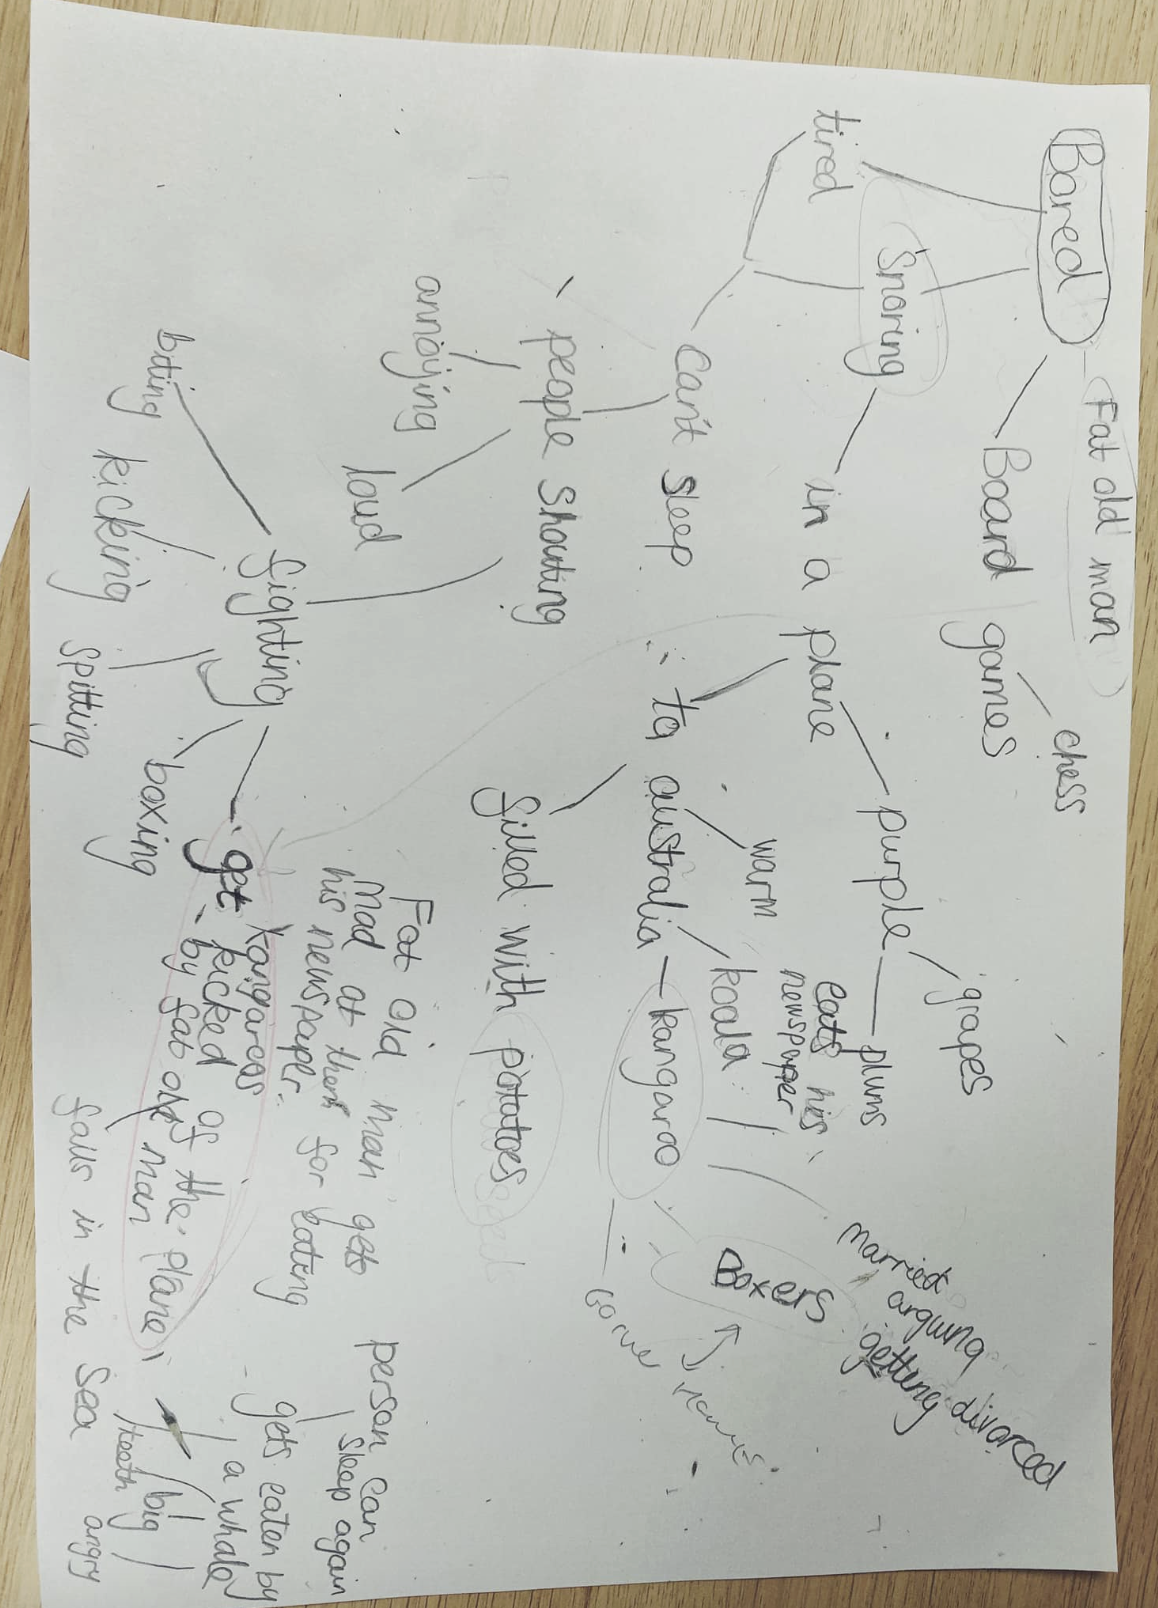 Bored
Fat old man
tired
Snoring
Board games
chess
in a plane
purple
grapes
plums
can't sleep
to australia
warm
koala
eats his
newspaper
kangaroo
Boxers
married
arguing
getting divorced
people shouting
filled with potatoes
annoying
loud
Fat old man gets
mad at them for eating
his newspaper.
person can
sleep again
fighting
biting
kicking
spitting
boxing
kangaroos
get kicked of the plane
by fat old man
gets eaten by
a whale
big
teeth
angry
falls in the sea